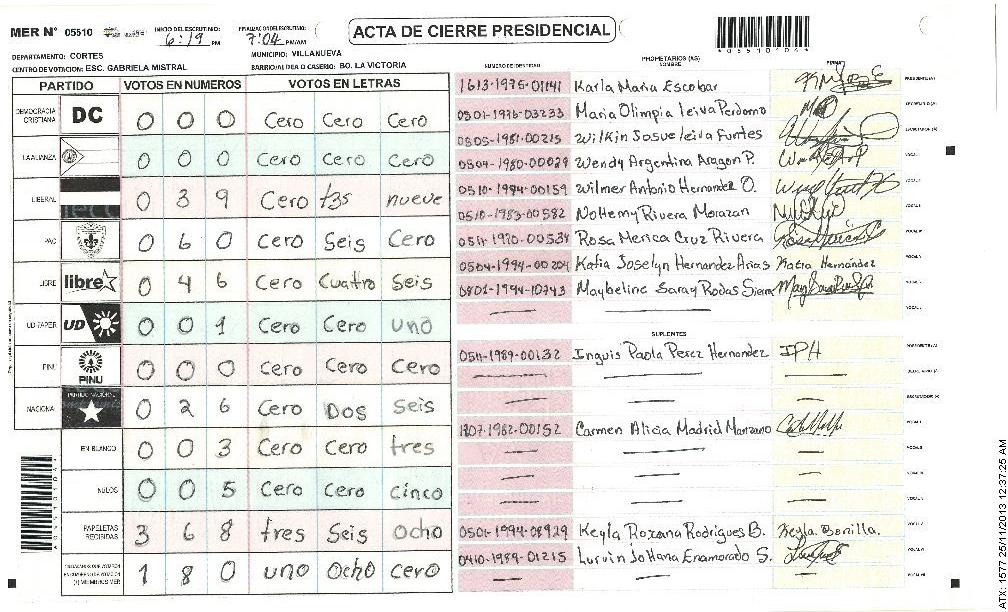 MER N° 05510 INICIO DEL ESCRUTINIO: 6:19 PM FINALIZACION DEL ESCRUTINIO: 7:04 PM/AM ACTA DE CIERRE PRESIDENCIAL
DEPARTAMENTO: CORTES MUNICIPIO: VILLANUEVA
CENTRO DE VOTACION: ESC. GABRIELA MISTRAL BARRIO/ALDEA O CASERIO: BO. LA VICTORIA
PARTIDO VOTOS EN NUMEROS VOTOS EN LETRAS
DEMOCRACIA CRISTIANA DC 0 0 0 Cero Cero Cero
LA ALIANZA 0 0 0 Cero Cero Cero
LIBERAL 0 3 9 Cero t3s nueve
PAC 0 6 0 Cero Seis Cero
LIBRE libre 0 4 6 Cero Cuatro Seis
UD-FAPER UD 0 0 1 Cero Cero uno
PINU PINU 0 0 0 Cero Cero Cero
NACIONAL PARTIDO NACIONAL 0 2 6 Cero Dos Seis
EN BLANCO 0 0 3 Cero Cero tres
NULOS 0 0 5 Cero Cero cinco
PAPELETAS RECIBIDAS 3 6 8 tres Seis Ocho
1 8 0 uno Ocho cero
NUMERO DE IDENTIDAD PROPIETARIOS (AS) NOMBRE FIRMA
1613-1975-01141 Karla Maria Escobar PRESIDENTE (A)
0501-1976-03233 Maria Olimpia leiva Perdomo SECRETARIO (A)
0505-1981-00215 Wilkin Josue leiva Funtes ESCRUTADOR (A)
0504-1980-00029 Wendy Argentina Aragon P. VOCAL I
0510-1994-00159 Wilmer Antonio Hernandez O. VOCAL II
0510-1983-00582 Nohemy Rivera Morazan
0511-1970-00534 Rosa Merica Cruz Rivera
0504-1994-00204 Katia Joselyn Hernandez Arias Katia Hernández
0801-1994-10743 Maybeline Saray Rodas Sierra
SUPLENTES
0511-1989-00132 Inguis Paola Perez Hernandez IPH PRESIDENTE (A)
SECRETARIO (A)
ESCRUTADOR (A)
1807-1982-00152 Carmen Alicia Madrid Manzano VOCAL I
0501-1994-08929 Keyla Roxana Rodrigues B. Keyla Bonilla.
0410-1989-01215 Lurvin Johana Enamorado S.
VOCAL VII
ATX: 1577 25/11/2013 12:37:25 AM